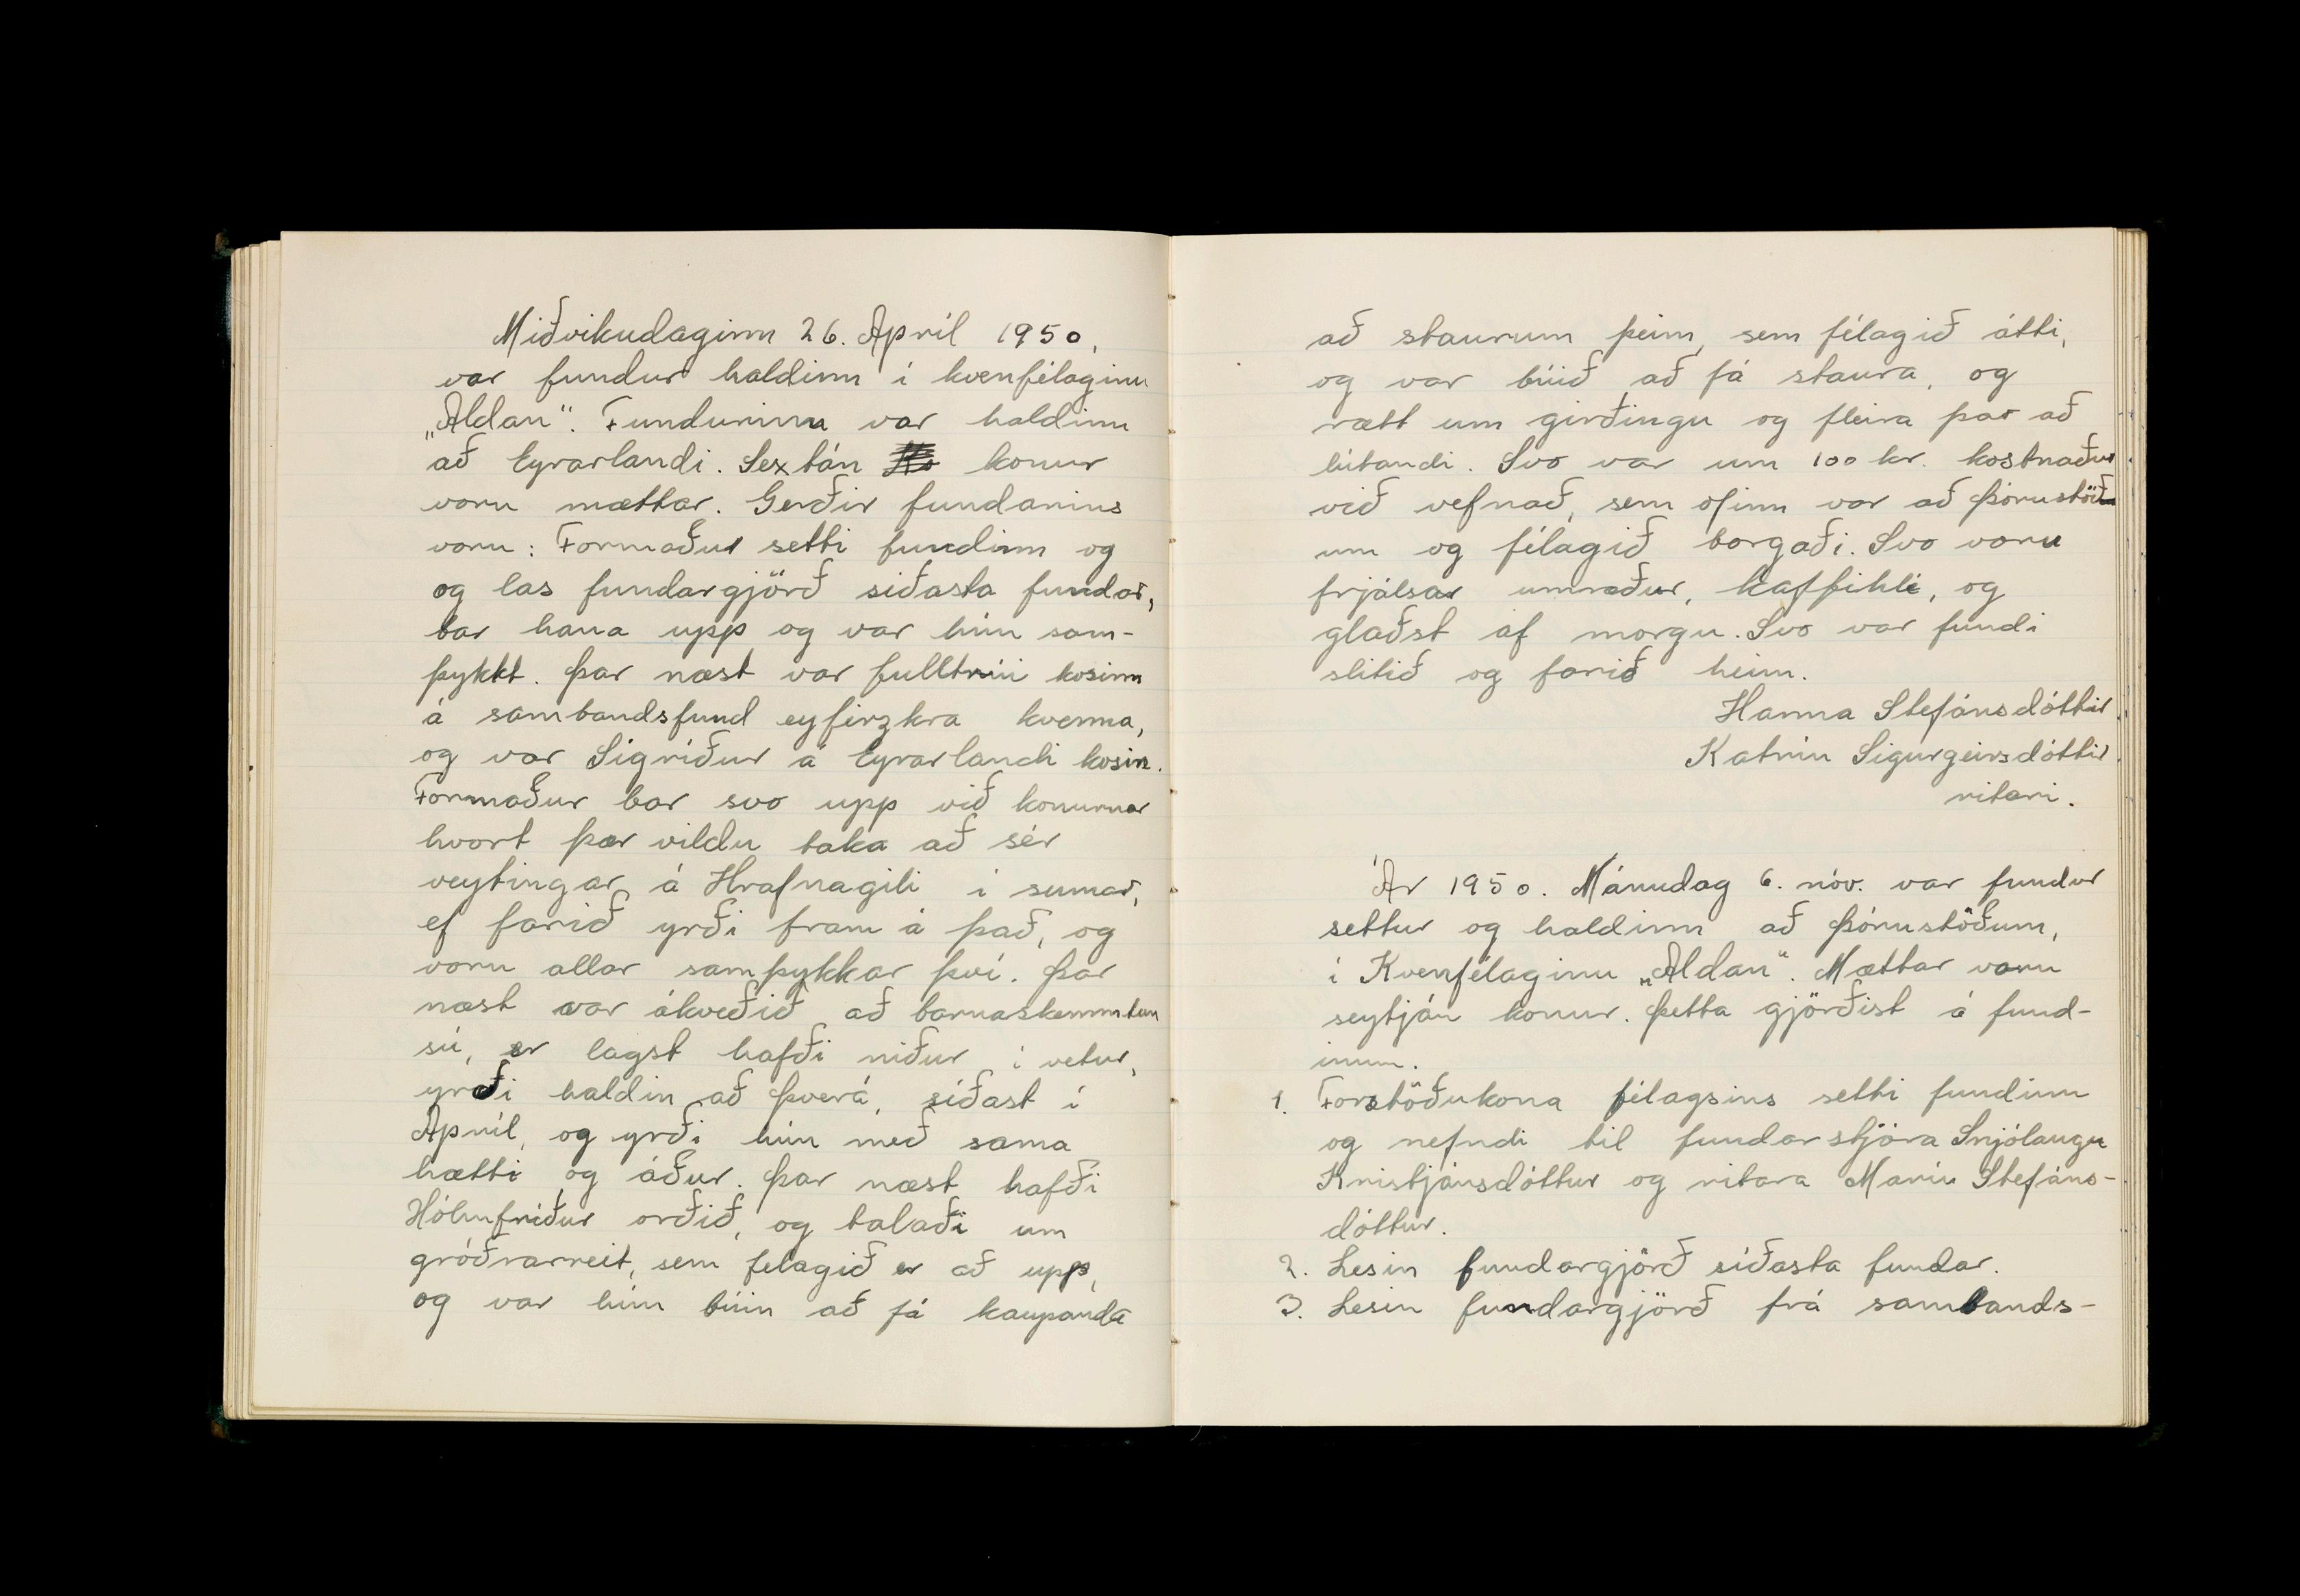 Miðvikudaginn 26. Apríl 1950,
var fundur haldinn í kvenfélaginu
„Aldan". Fundurinn var haldinn
að Eyrarlandi. Sextán konur
voru mættar. Gerðir fundarins
voru: Formaður setti fundinn og
og las fundargjörð síðasta fundar,
bar hana upp og var hún sam-
þykkt. Þar næst var fulltrúi kosinn
á sambandsfund eyfirzkra kvenna,
og var Sigríður á Eyrarlandi kosin.
Formaður bar svo upp við konurnar
hvort þær vildu taka að sér
veytingar á Hrafnagili í sumar,
ef farið yrði fram á það, og
voru allar samþykkar því. Þar
næst var ákveðið að barnaskemmtun
sú, er lagst hafði niður í vetur,
yrði haldin að Þverá, síðast í
Apríl, og yrði hún með sama
hætti og áður. Þar næst hafði
Hólmfríður orðið, og talaði um
gróðrarreit, sem félagið er að upp,
og var hún búin að fá kaupanda
að staurum þeim, sem félagið átti,
og var búið að fá staura, og
rætt um girðingu og fleira þar að
lútandi. Svo var um 100 kr. kostnaður
við vefnað, sem ofinn var að Þórustöð
um og félagið borgaði. Svo voru
frjálsar umræður, kaffihlé, og
glaðst af morgu. Svo var fundi
slitið og farið heim.
Hanna Stefánsdóttir
Katrín Sigurgeirsdóttir
ritari.
Ár 1950. Mánudag 6. nóv. var fundur
settur og haldinn að Þórustöðum,
í Kvenfélaginu „Aldan". Mættar voru
seytján konur. Þetta gjörðist á fund-
inum.
1. Forstöðukona félagsins setti fundinn
og nefndi til fundarstjóra Snjólaugu
Kristjánsdóttur og ritara Maríu Stefáns-
dóttur.
2. Lesin fundargjörð síðasta fundar.
3. Lesin fundargjörð frá sambands-